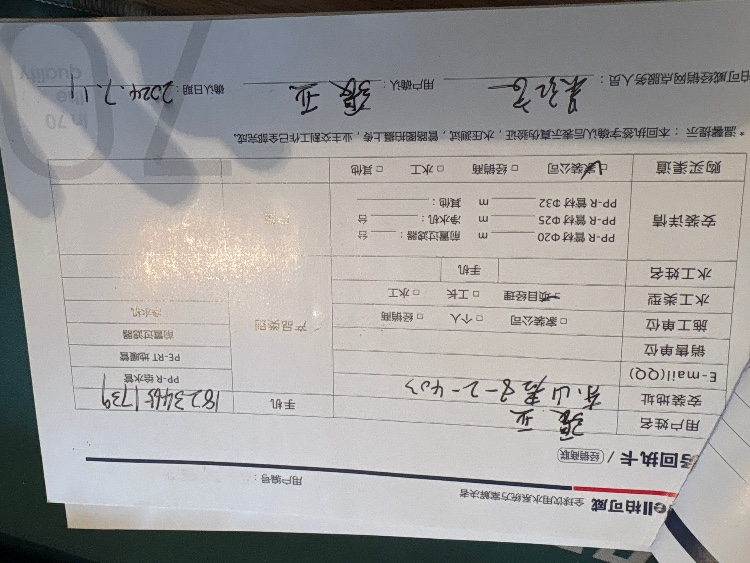 ell柏可威 全球饮用水系统方案解决者
用户编号：
回执卡 / 经销商联
用户姓名 张亚 手机 18234651739
安装地址 8-2-403
E-mail(QQ)
销售单位
施工单位 □ 家装公司 □ 个人 □ 经销商
水工类型 项目经理 □ 工长 □ 水工
水工姓名 手机
产品类别
PP-R 给水管
PE-RT 地暖管
前置过滤器
净水机
安装详情
PP-R 管材 Φ20 m 前置过滤器： 台
PP-R 管材 Φ25 m 净水机： 台
PP-R 管材 Φ32 m 其他：
购买渠道 家装公司 □ 经销商 □ 水工 □ 其他
*温馨提示：本回执签字确认后表示真伪验证，水压测试，管路图拍摄上传，业主交割工作已全部完成。
柏可威经销网点服务人员： 用户确认： 张亚 确认日期： 2024.7.11
70
in 70
quality